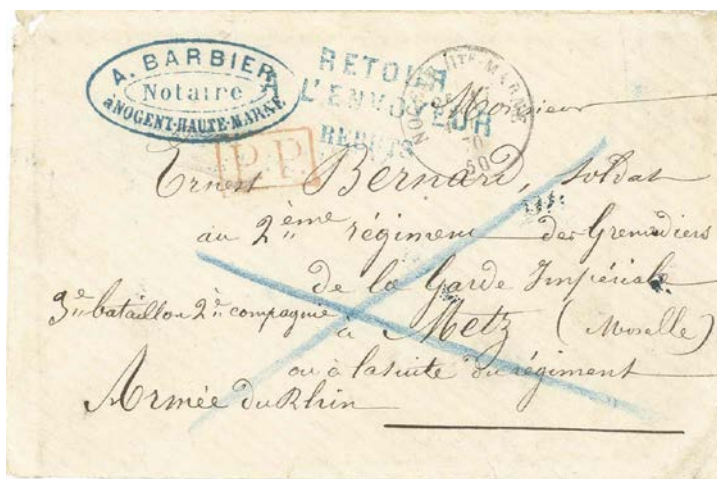 A. BARBIER
Notaire
à NOGENT-HAUTE-MARNE
RETOUR
L'ENVOYEUR
REBUTS
NOGENT HTE-MARNE
70
(50)
P.P.
Monsieur
Ernest Bernard, soldat
au 2ème régiment des Grenadiers
de la Garde Impériale
3e bataillon 2e compagnie à Metz (Moselle)
ou à la suite du régiment
Armée du Rhin